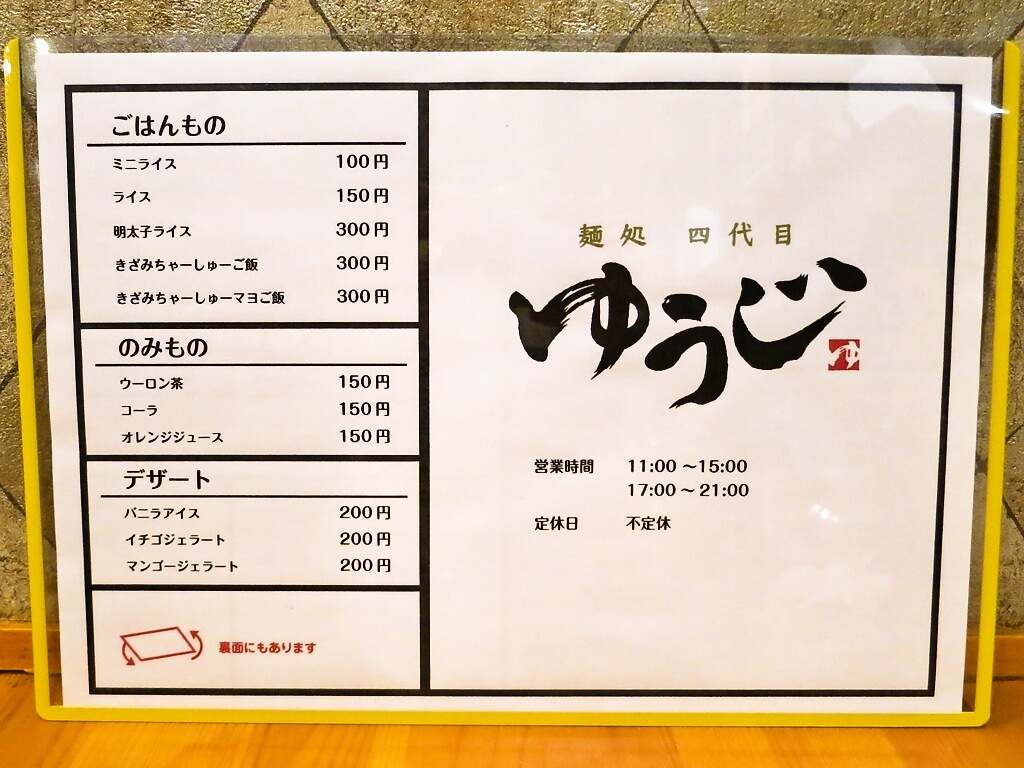 ごはんもの
ミニライス 100円
ライス 150円
明太子ライス 300円
きざみちゃーしゅーご飯 300円
きざみちゃーしゅーマヨご飯 300円
のみもの
ウーロン茶 150円
コーラ 150円
オレンジジュース 150円
デザート
バニラアイス 200円
イチゴジェラート 200円
マンゴージェラート 200円
裏面にもあります
麺処 四代目
ゆうじ
ゆ
営業時間 11:00 ~15:00
17:00 ~ 21:00
定休日 不定休